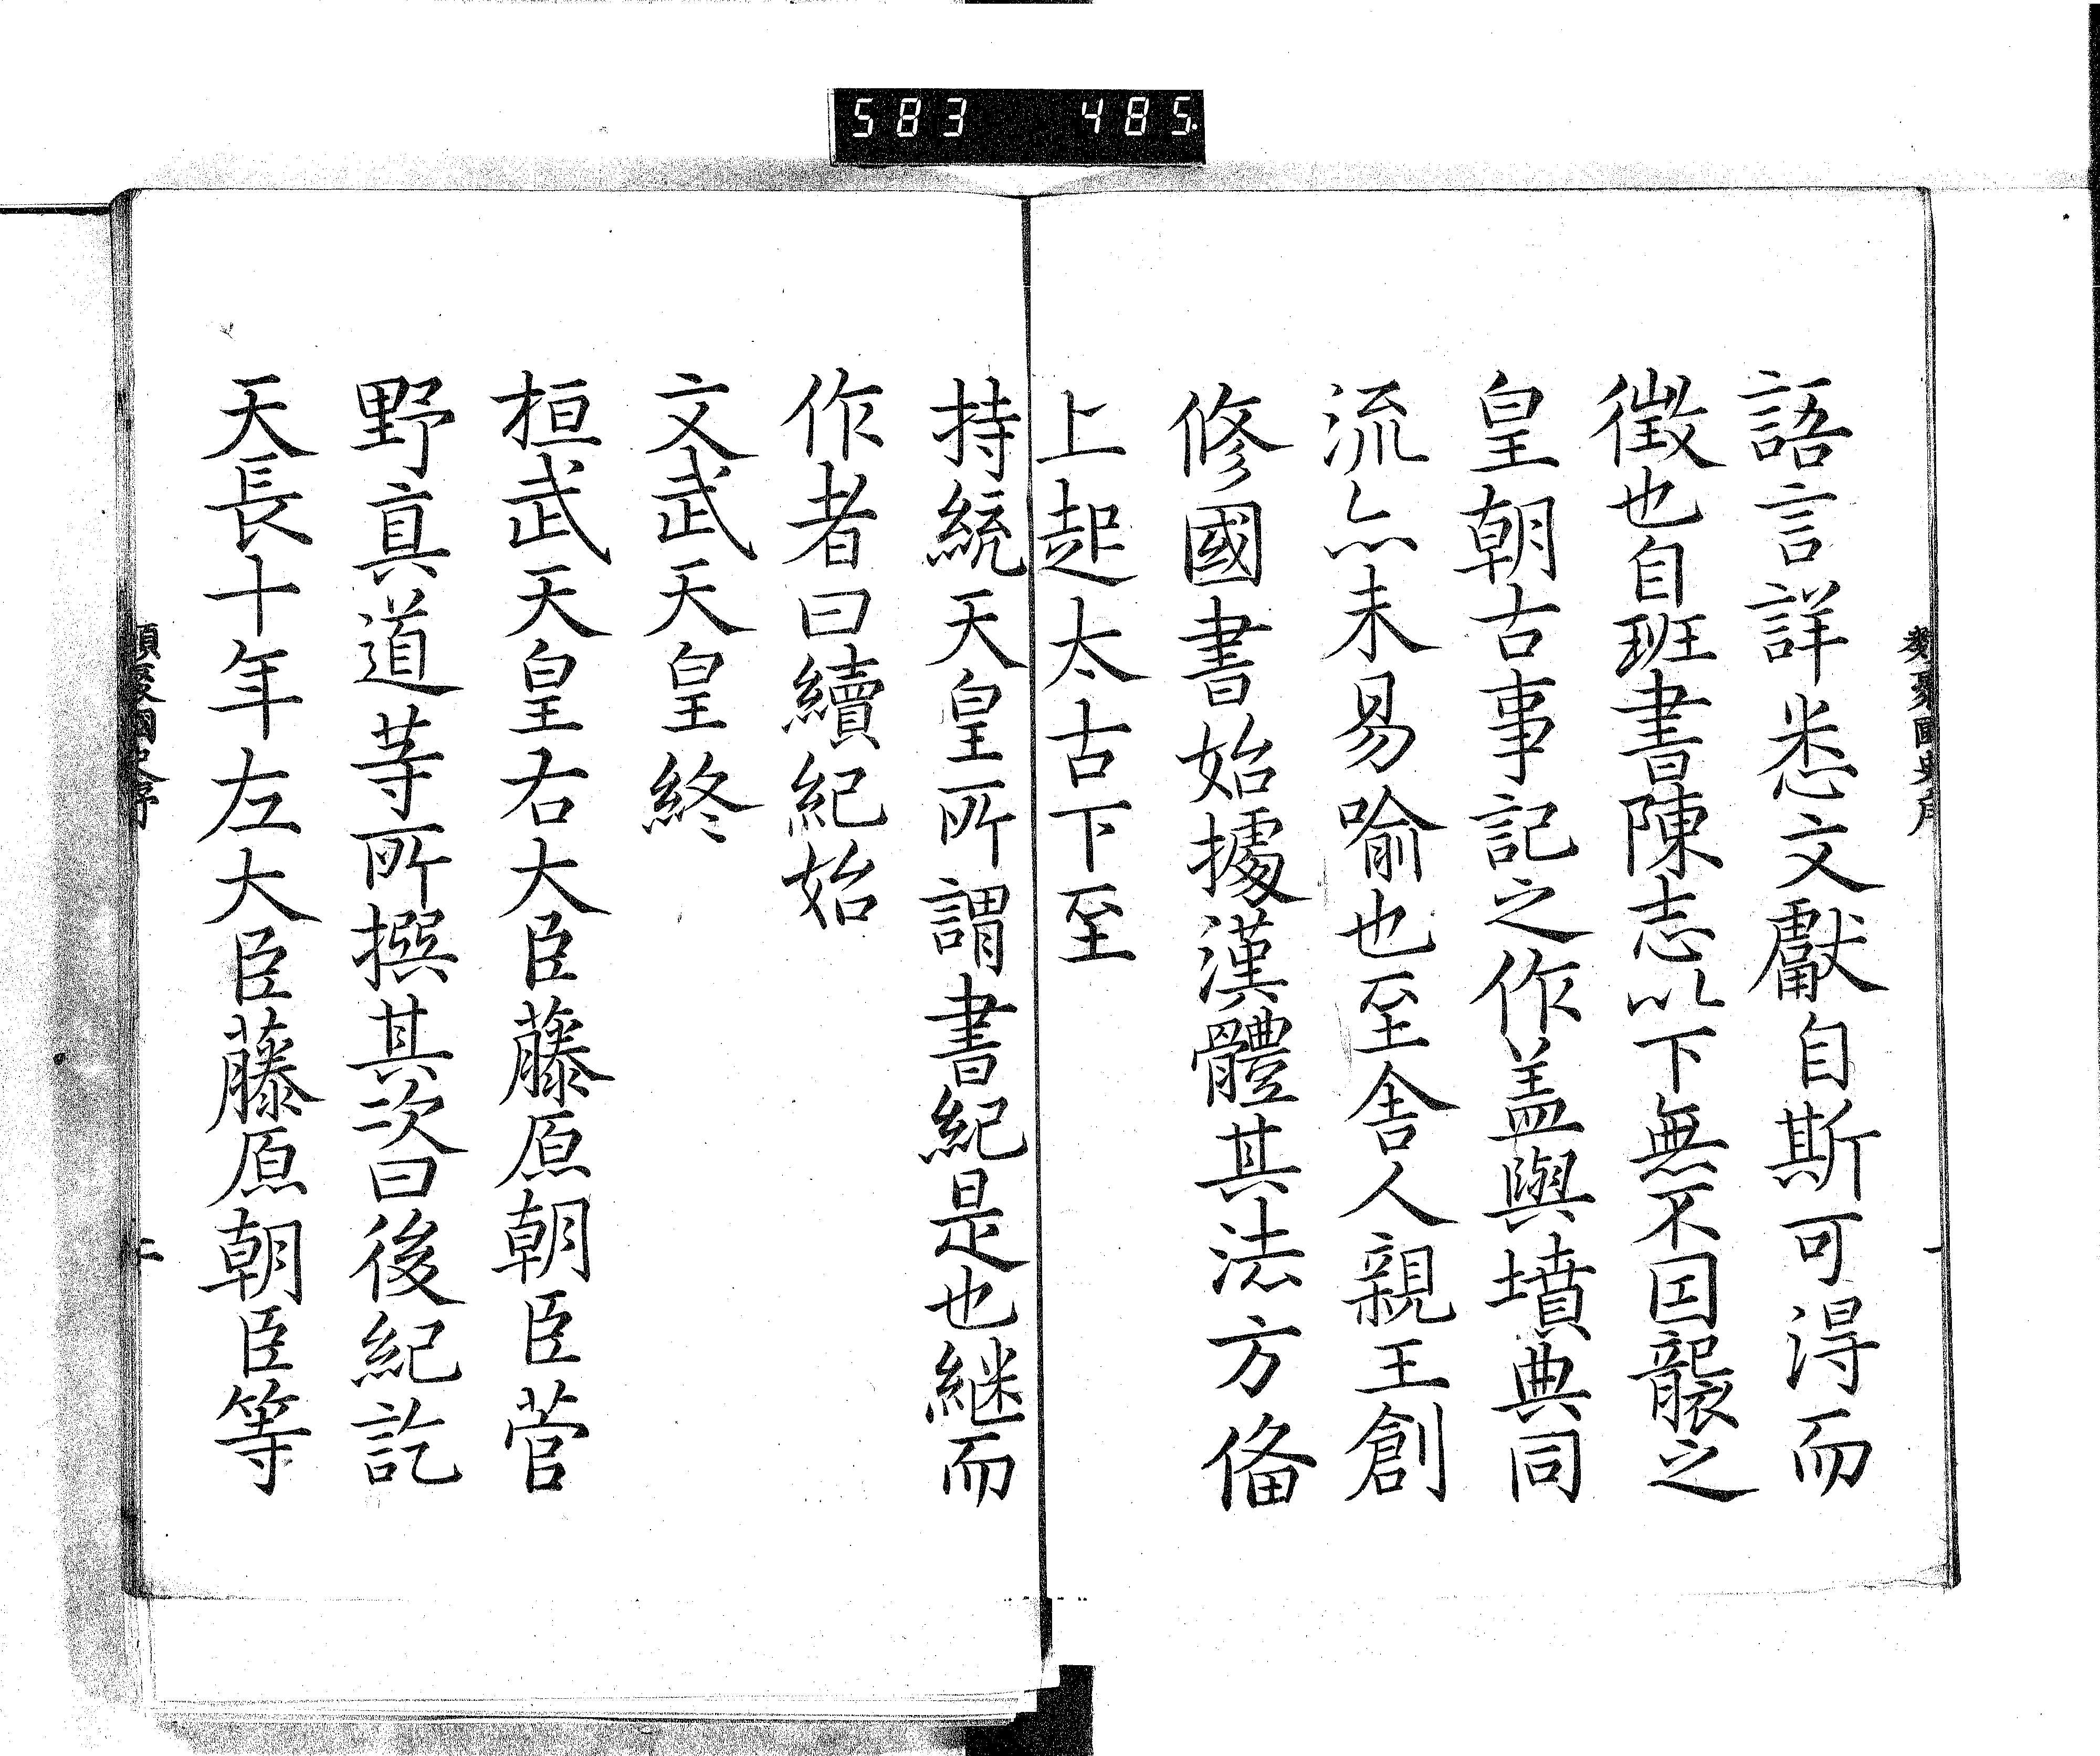 583 485
類聚國史序
一
語言詳悉文獻自斯可得而
徴也自班書陳志以下無不因襲之
皇朝古事記之作盖與墳典同
流亦未易喻也至舎人親王創
修國書始據漢體其法方俻
上起太古下至
持統天皇所謂書紀是也継而
作者曰續紀始
文武天皇終
桓武天皇右大臣藤原朝臣菅
野真道等所撰其次曰後紀訖
天長十年左大臣藤原朝臣等
類聚國史序
二